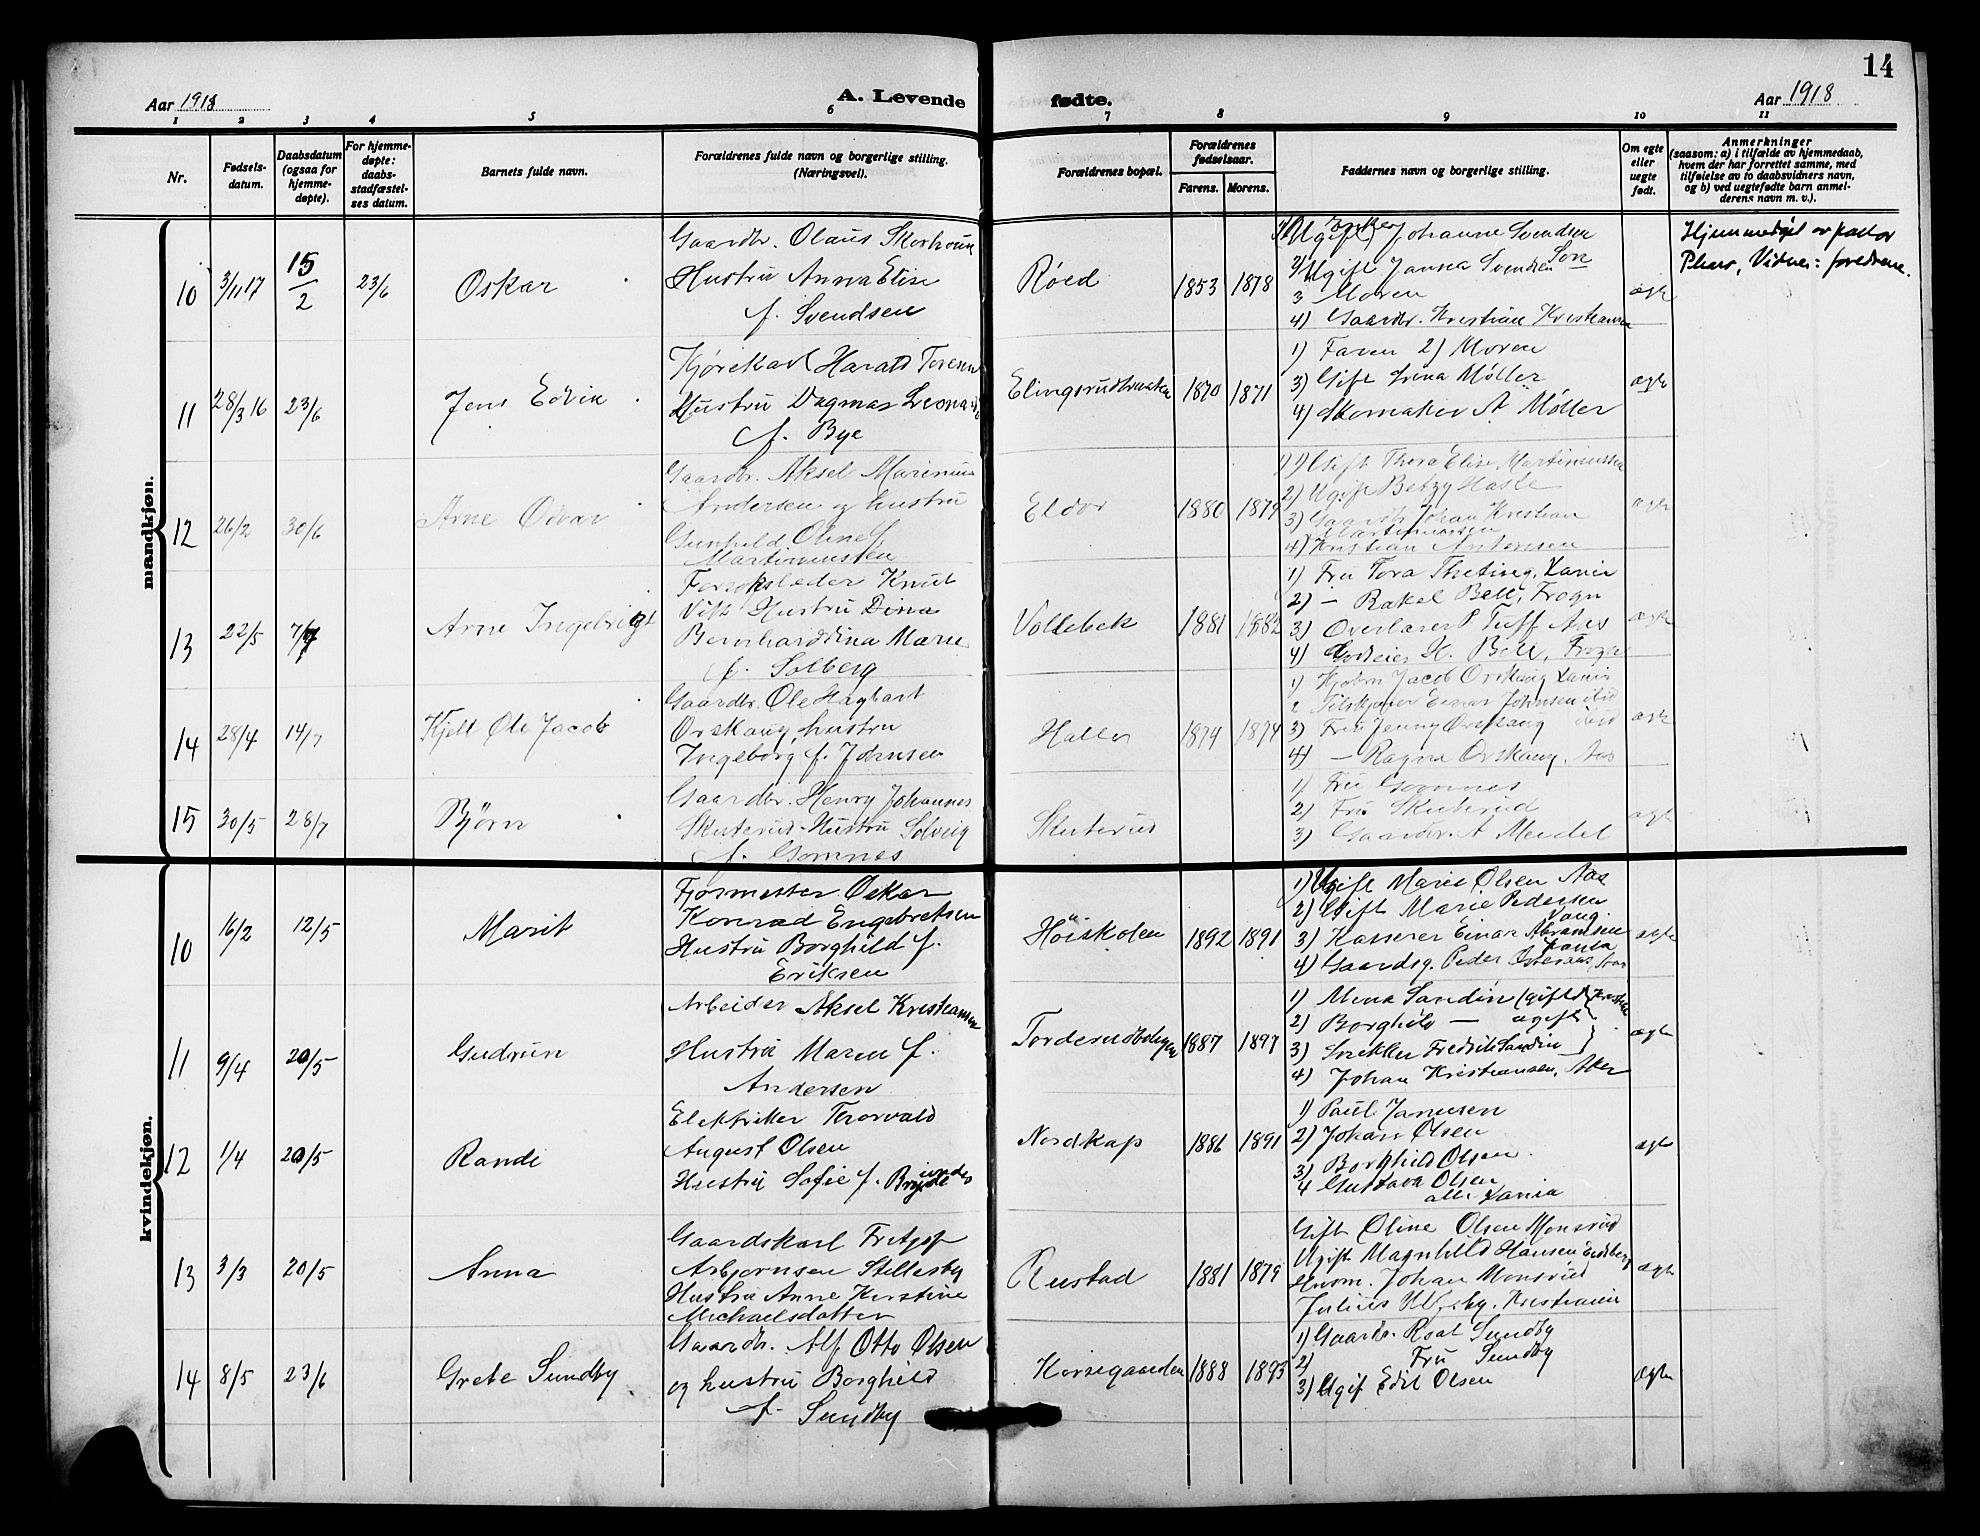 14
Aar 1918
A. Levende
fødte.
Aar 1918
1 2 3 4 5 6 7 8 9 10 11
Nr.
Fødsels-
datum.
Daabsdatum
(ogsaa for
hjemme-
døpte).
For hjemme-
døpte:
daabs-
stadfæstel-
ses datum.
Barnets fulde navn.
Forældrenes fulde navn og borgerlige stilling.
(Næringsvei).
Forældrenes bopæl.
Forældrenes
fødselsaar.
Farens. Morens.
Faddernes navn og borgerlige stilling.
Om egte
eller
uegte
født.
Anmerkninger
(saasom: a) i tilfælde av hjemmedaab,
hvem der har forrettet samme, med
tilføielse av to daabsvidners navn,
og b) ved uegtefødte barn anmel-
derens navn m. v.).
mandkjøn.
10 3/11 17 15/2 23/6 Oskar
Gaardbr. Olaus
Hustru Anna Elise
f. Svendsen
Røed 1853 1878
1) Ugift Johanne Svendsen
2) Ugift Svendsen Son
3 Moren
4) Gaardbr. Kristian Kristiansen
ægte
Hjemmedøpt av pastor
Vidner: foreldrene.
11 28/3 16 23/6 Jens Edvin
Kjørekarl Harald
Hustru Dagmar
f. Bye
1870 1871
1) Faren 2) Moren
3) Gift Møller
4) Skomaker A Møller
ægte
12 26/2 30/6 Arne Odvar
Gaardbr. Aksel Marinius
Andersen og hustru
Gunhild Oline
Martinussen
Eldor 1880 1879
1) Gift Thora Elise Martinussen
2) Ugift Betzy Hasle
3) Johan Kristian
Martinussen
4) Kristian
ægte
13 22/5 7/7 Arne Ingebrigt
Forsøksleder Knut
Vik Hustru Dina
Bernharddina Marie
f. Solberg
Vollebek 1881 1882
1) Fru Tora
2) — Rakel Bell, Frogn
3) Overlærer P Tuff Aas
4) H. Bell, Frogn
ægte
14 28/4 14/7 Kjell Ole Jacob
Gaardbr. Ole Hagbart
Orskaug, hustru
Ingeborg f. Johnsen
Haller 1874 1874
1) Jacob Orskaug
2 Einar Johnsen
3) Fru Jenny Orskaug
4) — Ragna Orskaug, Aas
ægte
15 30/5 28/7 Bjørn
Gaardbr. Henry Johannes
Skuterud. Hustru Solveig
f. Gomnes
Skuterud
1) Fru Gomnes
2) Fru Skuterud
3) Gaardbr. A Mendel
ægte
kvindekjøn.
10 16/2 12/5 Marit
Fjosmester Oskar
Konrad Engebretsen
Hustru Borghild f.
Eriksen
Høiskolen 1892 1891
1) Ugift Marie Olsen Aas
2) Gift Marie Pedersen
3) Kasserer Einar Abramsen
4) Gaardsg. Peder
ægte
11 9/4 20/5 Gudrun
Arbeider Aksel Kristiansen
Hustru Maren f.
Andersen
1887 1897
1) Mina Sandin (gift)
2) Borghild — ugift
3) Snekker Fredrik Sandin
4) Johan Kristiansen, Aker
ægte
12 1/4 20/5 Randi
Elektriker Torvald
August Olsen
Hustru Sofie f.
Nordkap 1886 1891
1) Paul Janusen
2) Johan Olsen
3) Borghild Olsen.
4 Gustava Olsen
alle Xania
ægte
13 3/3 20/5 Anna
Gaardskarl Fritjof
Asbjørnsen Stillesby
Hustru Anne Kirstine
Michaelsdatter
Rustad 1881 1879
Gift Oline Olsen Monsrud
Ugift Magnhild Hansen
Husm. Johan Monsrud
Julius Kristiania
ægte
14 8/5 23/6 Grete Sundby
Gaardbr. Alf Otto Olsen
og hustru Borghild
f. Sundby
Korsegaarden 1888 1893
1) Gaardbr. Roal Sundby
2) Fru Sundby
3) Ugif Edit Olsen
ægte